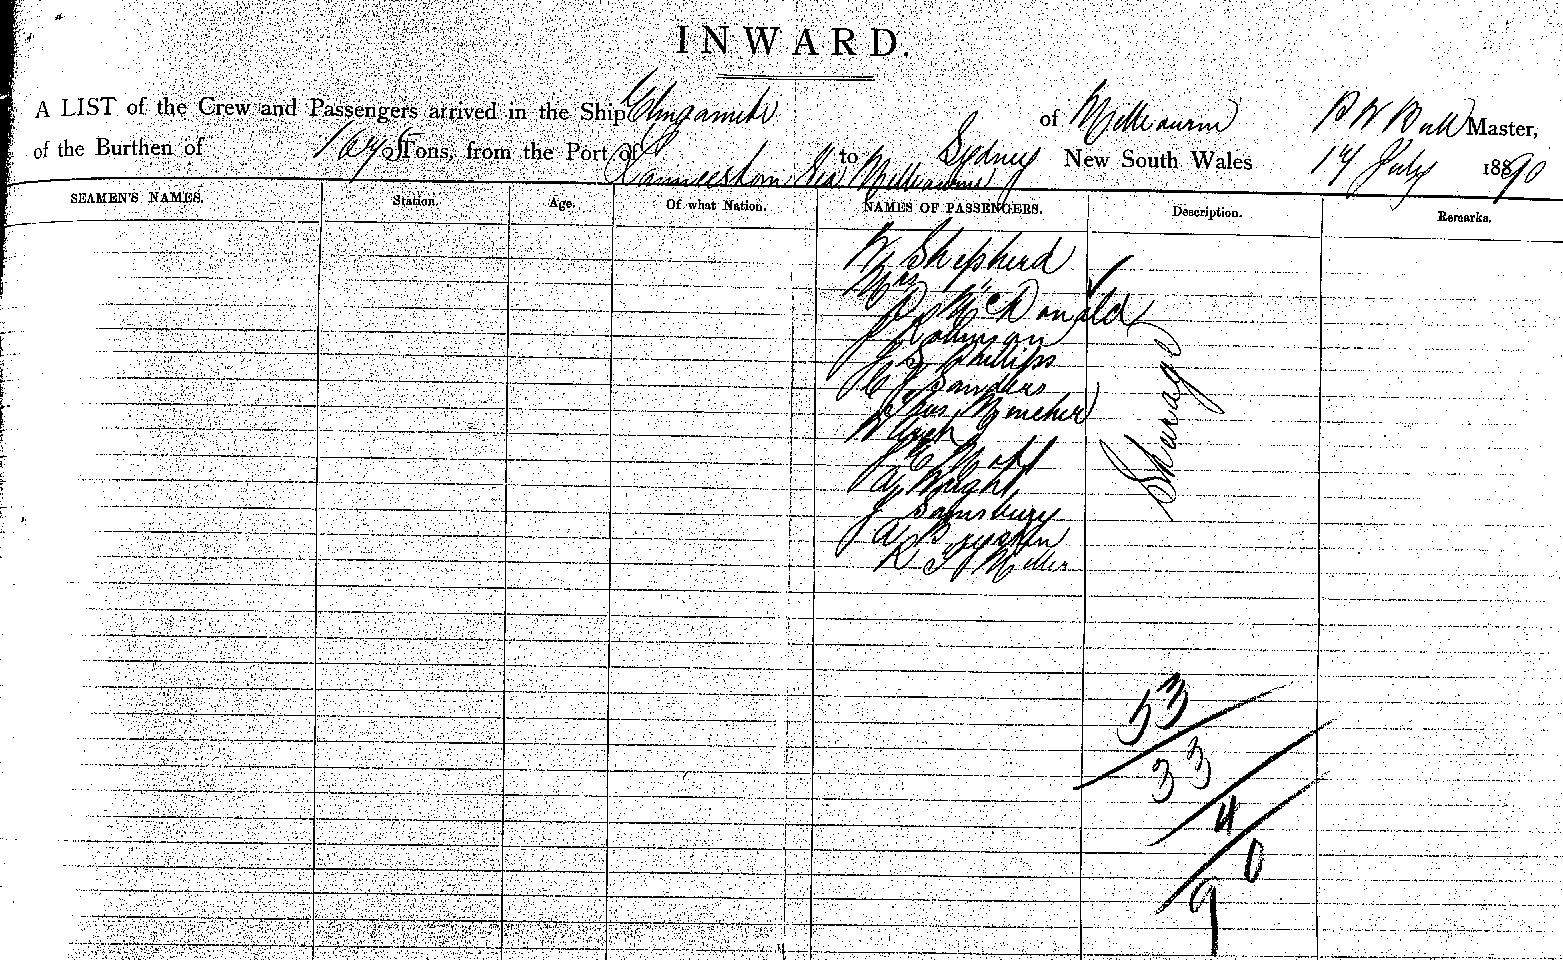 INWARD.
A LIST of the Crew and Passengers arrived in the Ship Elingamite of Melbourne B W Bull Master,
of the Burthen of 1675 Tons, from the Port of Launceston via Melbourne to Sydney New South Wales 14 July 1890
SEAMEN'S NAMES. Station. Age. Of what Nation. NAMES OF PASSENGERS. Description. Remarks.
W Shepherd
Mrs "
P McDonald
J
J S Phillips
C J Sanders
W
J C
A Wright
J Sainsbury
A
R T Miller
Steerage
53
33
4
0
9